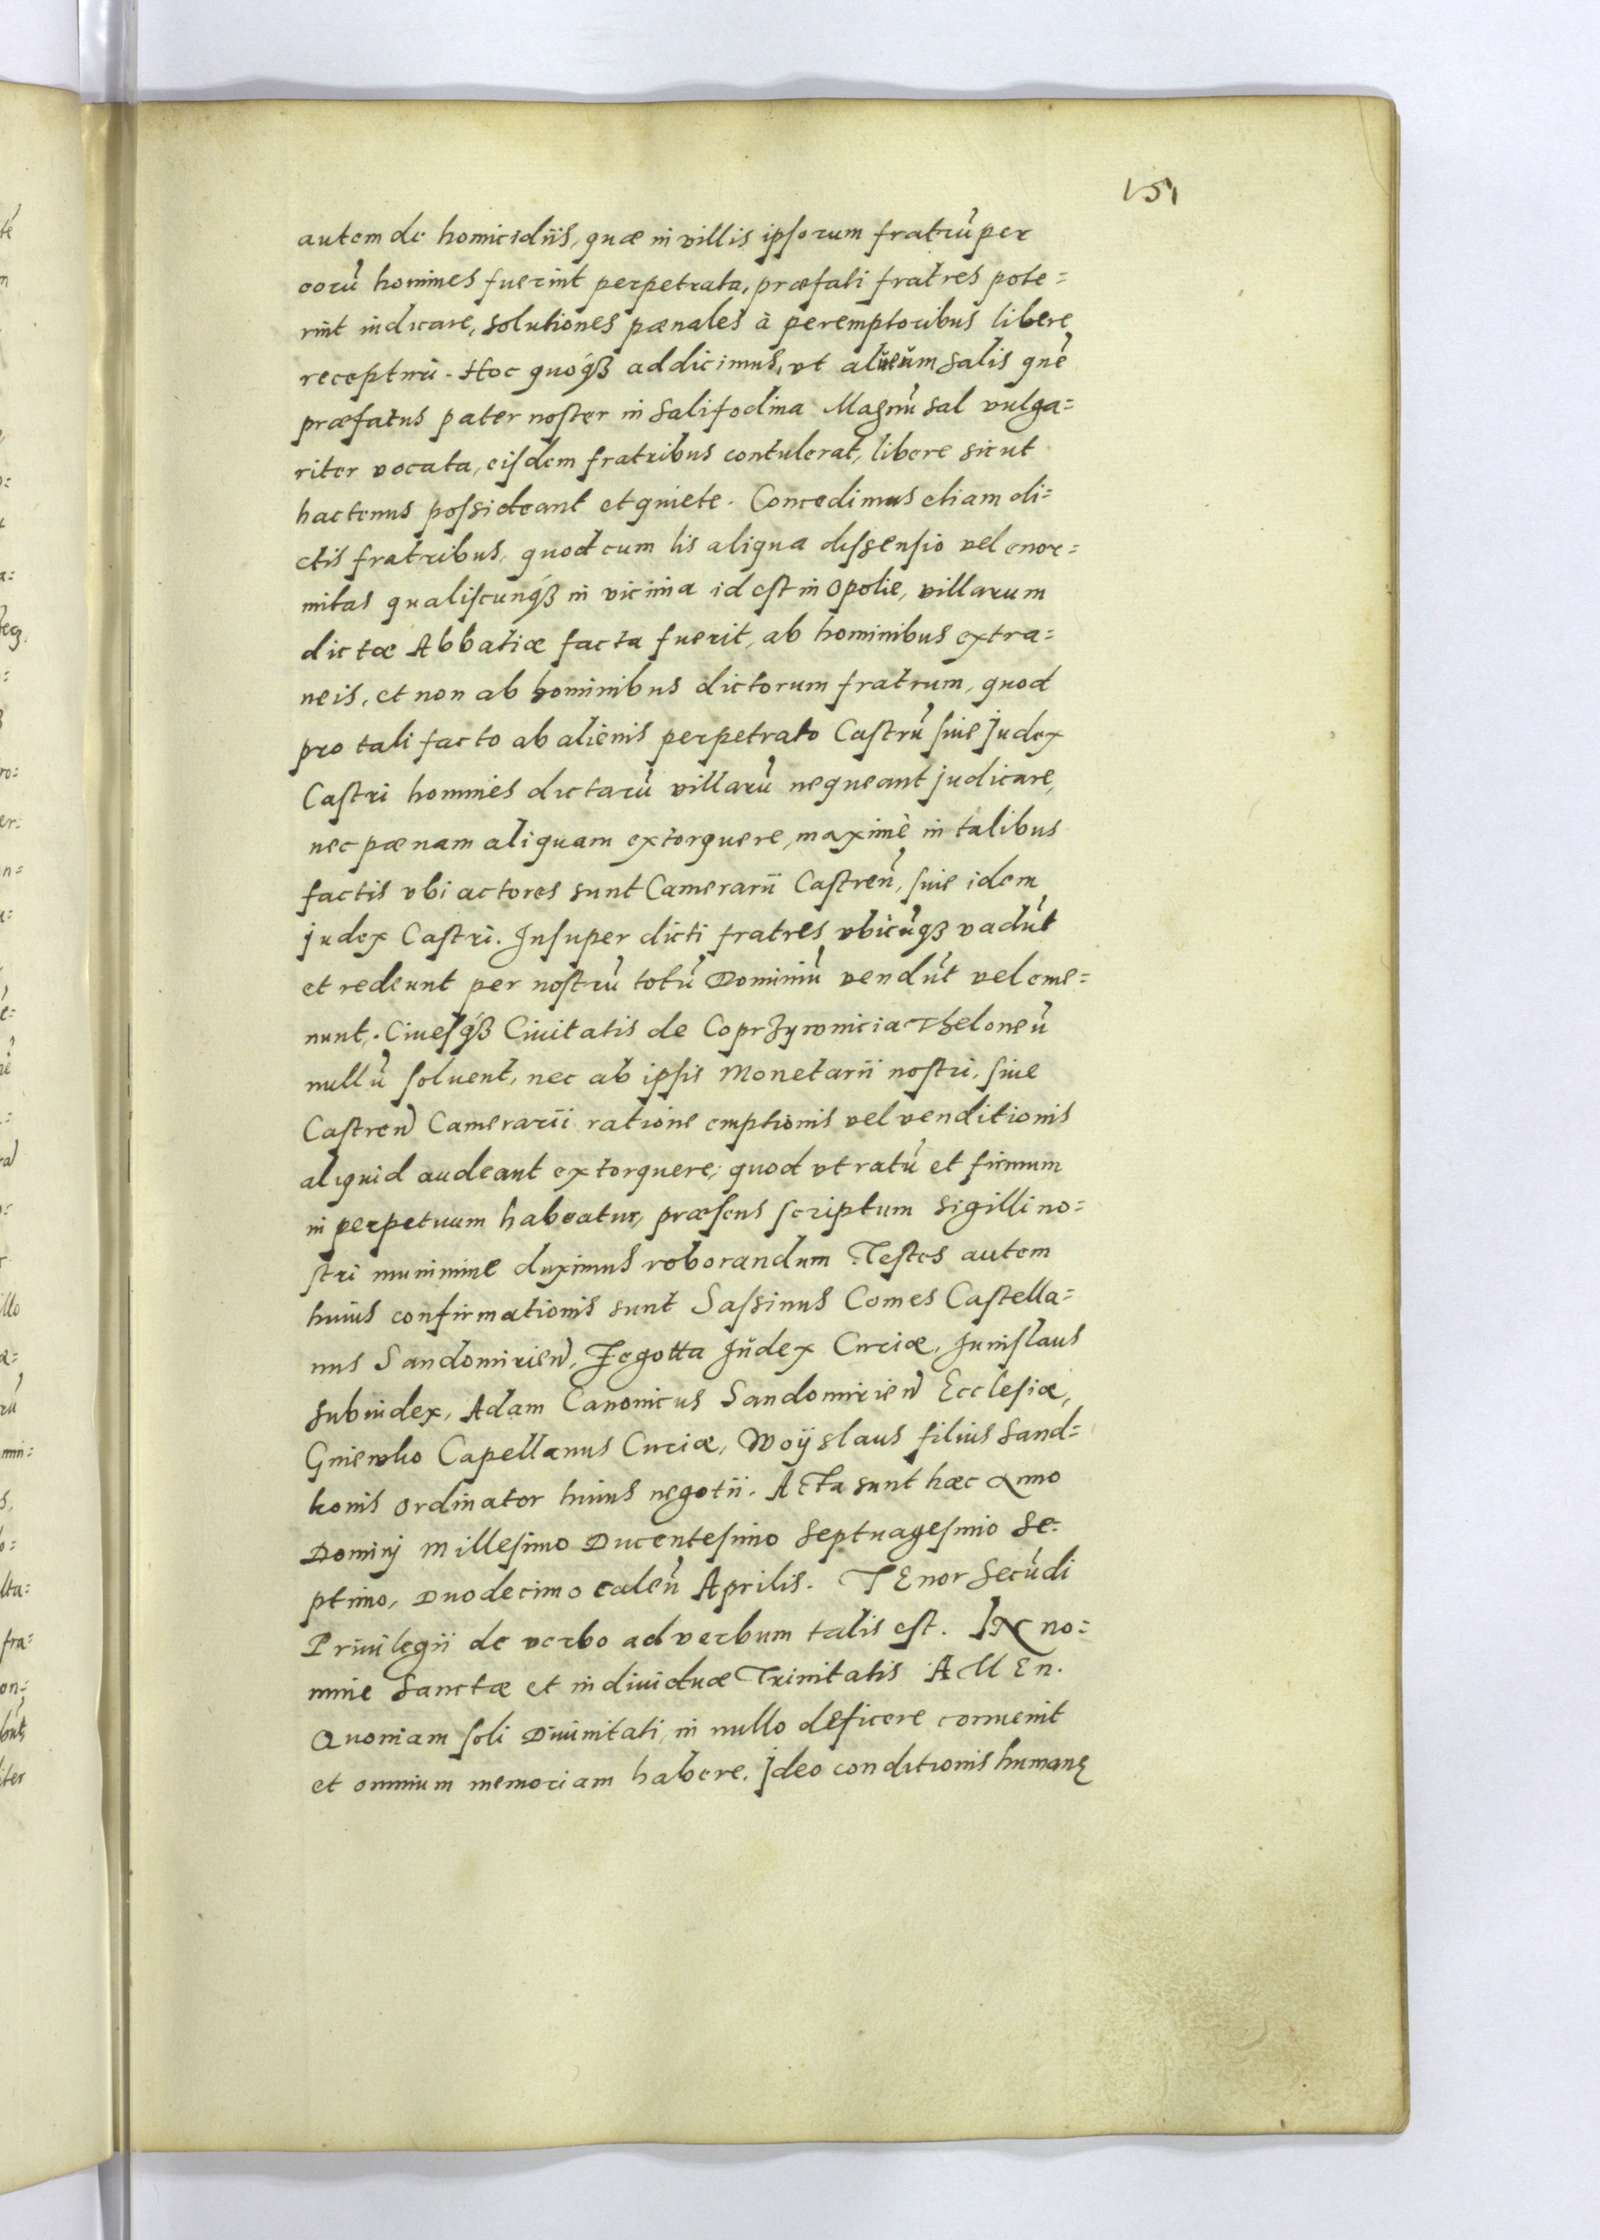 151
autem de homicidiis, quæ in villis ipsorum fratrū per
eorū homines fuerint perpetrata, præfati fratres pote=
rint iudicare, solutiones pænales à peremptoribus libere
recepturi. Hoc quoq́ꝫ addicimus, vt alueum salis quē
præfatus pater noster in Salifodina Magnū sal vulga=
riter vocata, eisdem fratribus contulerat, libere sicut
hactenus possideant et quiete. Concedimus etiam di=
ctis fratribus, quod cum lis aliqua dissensio vel enor=
mitas qualiscunq́ꝫ in vicinia id est in opolie, villarum
dictæ Abbatiæ facta fuerit, ab hominibus extra=
neis, et non ab hominibus dictorum fratrum, quod
pro tali facto ab alienis perpetrato Castrū siue Judex
Castri homines dictarū villarū nequeant judicare,
nec pænam aliquam extorquere, maximè in talibus
factis vbi actores sunt Camerarii Castreñ, siue idem
judex Castri. Insuper dicti fratres vbicūqꝫ vadūt
et redeunt per nostrū totū Dominiū vendūt vel eme=
nunt. Ciuesq́ꝫ Ciuitatis de Coprzywnicia Theloneū
nullū soluent, nec ab ipsis Monetarii nostri, siue
Castreñ Camerarii ratione emptionis vel venditionis
aliquid audeant extorquere; quod vt ratū et firmum
in perpetuum habeatur, præsens scriptum sigilli no=
stri munimine duximus roborandum Testes autem
huius confirmationis sunt Sassinus Comes Castella=
nus Sandomirieñ, Zegotta Judex Curiæ, Junislaus
Subiudex, Adam Canonicus Sandomirieñ Ecclesiæ,
Gniewko Capellanus Curiæ, Woÿslaus filius Sand=
konis ordinator huius negotii. Acta sunt hæc Anno
Dominj Millesimo Ducentesimo Septuagesimo Se=
ptimo, Duodecimo caleñ Aprilis. TEnor Secūdi
Priuilegii de verbo ad verbum talis est. IN no=
mine Sanctæ et indiuiduæ Trinitatis AMEn.
Quoniam soli Diuinitati, in nullo deficere conuenit
et omnium memoriam habere. Ideo conditionis humanę